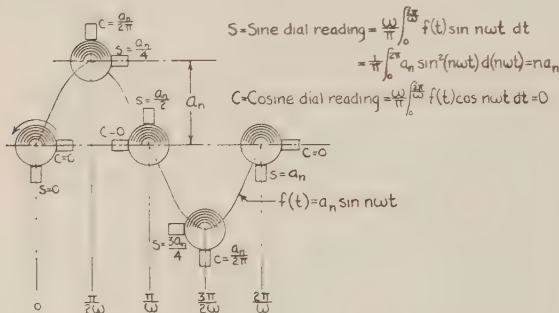 C=aₙ/2π
S=aₙ/4
aₙ
S=aₙ/2
C=0
C=0
C=0
S=0
S=aₙ
S=3aₙ/4
C=aₙ/2π
f(t)=aₙ sin nωt
0 π/2ω π/ω 3π/2ω 2π/ω
S=Sine dial reading=ω/π∫₀^(2π/ω) f(t) sin nωt dt
=1/π∫₀^(2π) aₙ sin²(nωt)d(nωt)=naₙ
C=Cosine dial reading=ω/π∫₀^(2π/ω) f(t)cos nωt dt=0